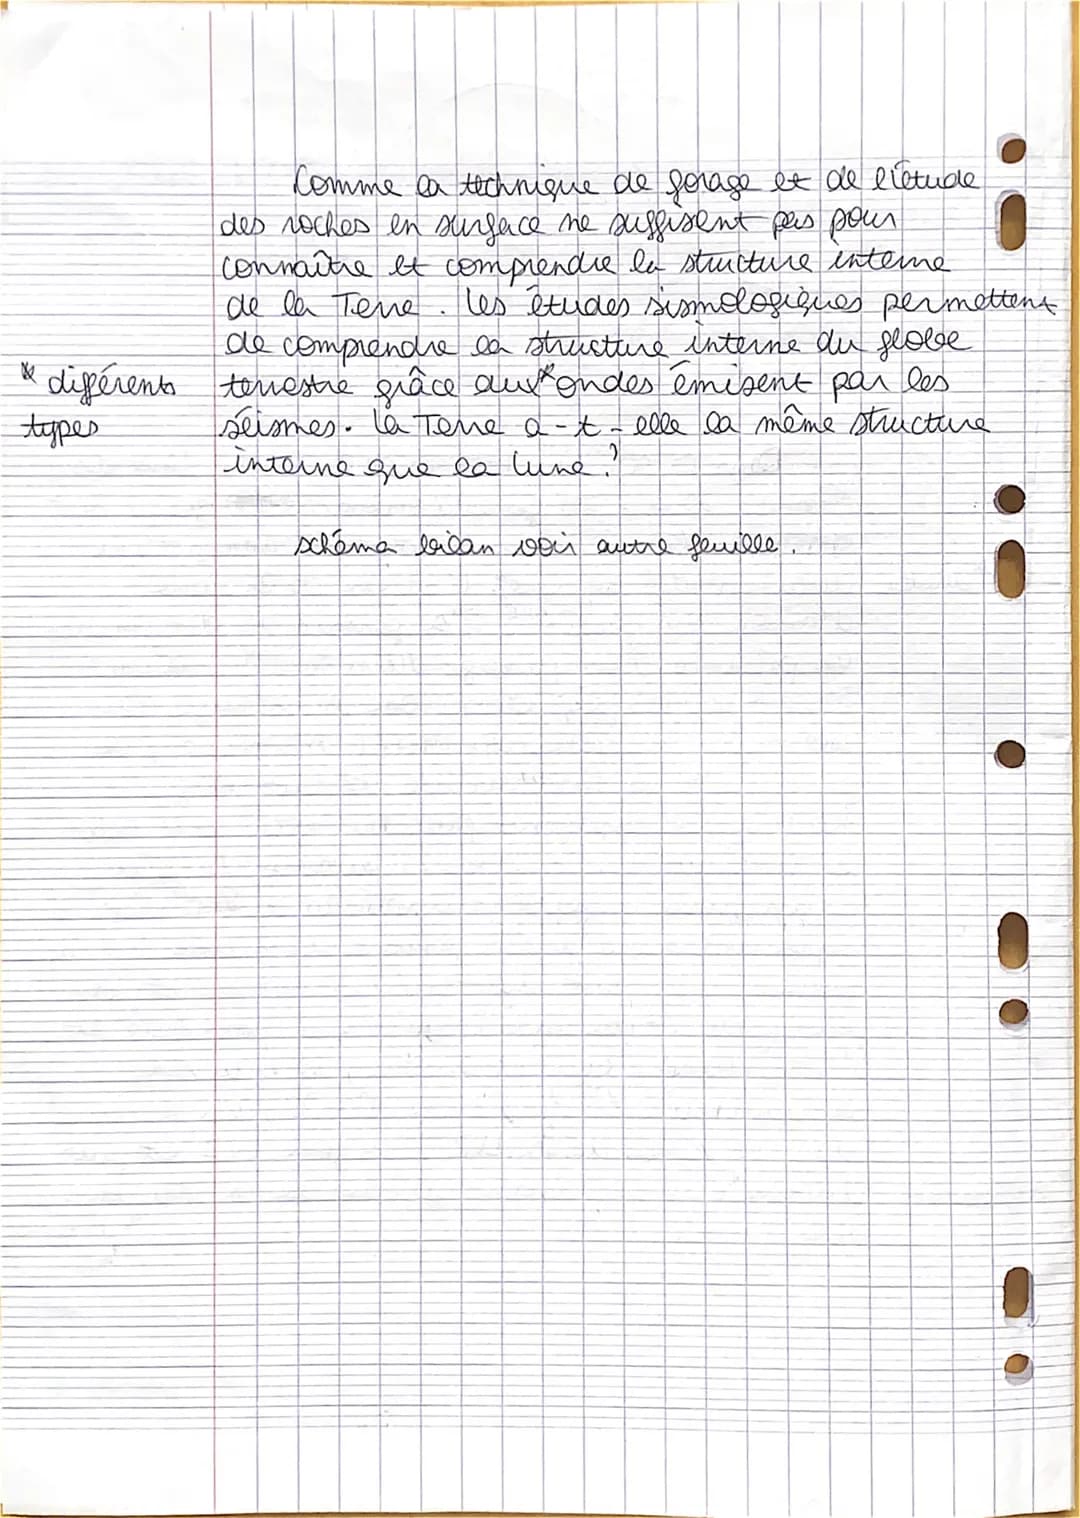 Comme la technique de forage et de l'étude
des roches en surface ne suffisent pas pour
connaître et comprendre la structure interne
de la Terre. Les études sismologiques permettent
de comprendre la structure interne du globe
* différents
types
terrestre grâce aux * ondes émisent par les
séismes. La Terre a-t-elle la même structure
interne que la Lune ?
schéma bilan voir autre feuille.